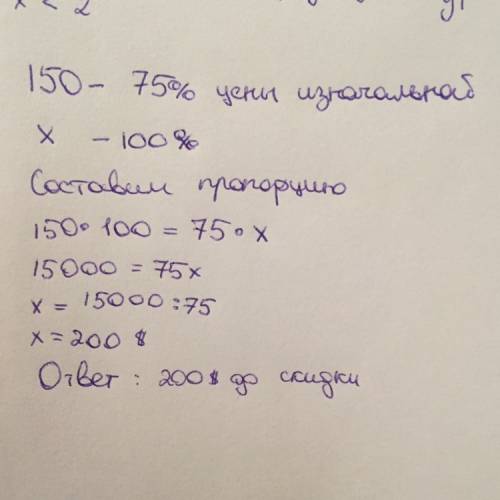 x < 2
150 - 75% цены изначальной
x - 100%
Составим пропорцию
150 • 100 = 75 • x
15000 = 75x
x = 15000 : 75
x = 200 $
Ответ : 200$ до скидки